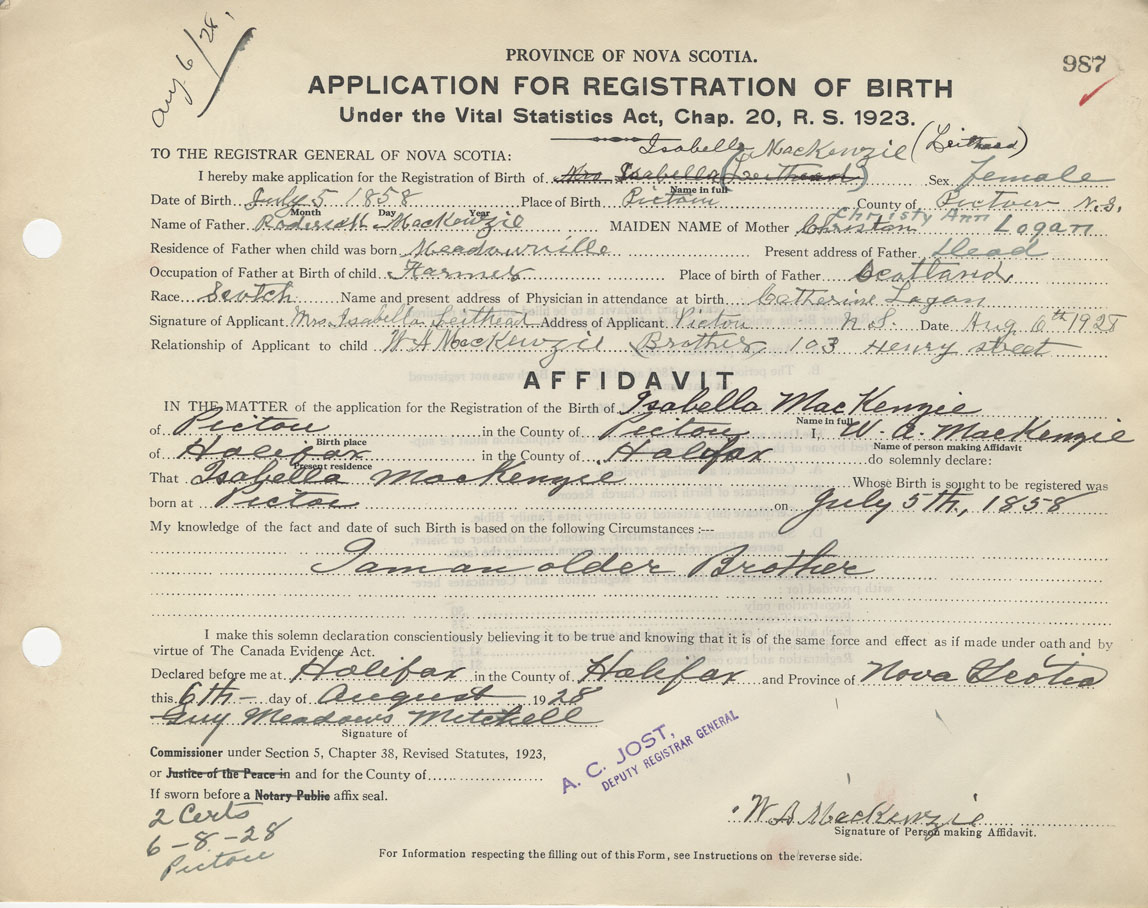 Aug 6/28.
987
PROVINCE OF NOVA SCOTIA.
APPLICATION FOR REGISTRATION OF BIRTH
Under the Vital Statistics Act, Chap. 20, R. S. 1923.
Isabella MacKenzie (Leithead)
TO THE REGISTRAR GENERAL OF NOVA SCOTIA:
I hereby make application for the Registration of Birth of Mrs Isabella (Leithead) Sex Female
Name in full
Date of Birth July 5 1858 Place of Birth Pictou County of Pictou N.S.
Month Day Year
Christy Ann
Name of Father Roderick MacKenzie MAIDEN NAME of Mother Christan Logan
Residence of Father when child was born Meadowville Present address of Father Dead
Occupation of Father at Birth of child Farmer Place of birth of Father Scotland
Race Scotch Name and present address of Physician in attendance at birth Catherine Logan
Signature of Applicant Mrs. Isabella Leithead Address of Applicant Pictou N.S. Date Aug 6th 1928
Relationship of Applicant to child W A MacKenzie (Brother) 103 Henry street
AFFIDAVIT
IN THE MATTER of the application for the Registration of the Birth of Isabella MacKenzie
Name in full
of Pictou in the County of Pictou I, W. A. MacKenzie
Birth place Name of person making Affidavit
of Halifax in the County of Halifax do solemnly declare:
Present residence
That Isabella MacKenzie Whose Birth is sought to be registered was
born at Pictou on July 5th, 1858
My knowledge of the fact and date of such Birth is based on the following Circumstances :---
I am an older Brother
I make this solemn declaration conscientiously believing it to be true and knowing that it is of the same force and effect as if made under oath and by
virtue of The Canada Evidence Act.
Declared before me at Halifax in the County of Halifax and Province of Nova Scotia
this 6th - day of August 1928
Guy Meadows Mitchell
Signature of
Commissioner under Section 5, Chapter 38, Revised Statutes, 1923,
or Justice of the Peace in and for the County of
If sworn before a Notary Public affix seal.
A. C. JOST,
DEPUTY REGISTRAR GENERAL
2 Certs
6-8-28
Pictou
W A MacKenzie
Signature of Person making Affidavit.
For Information respecting the filling out of this Form, see Instructions on the reverse side.